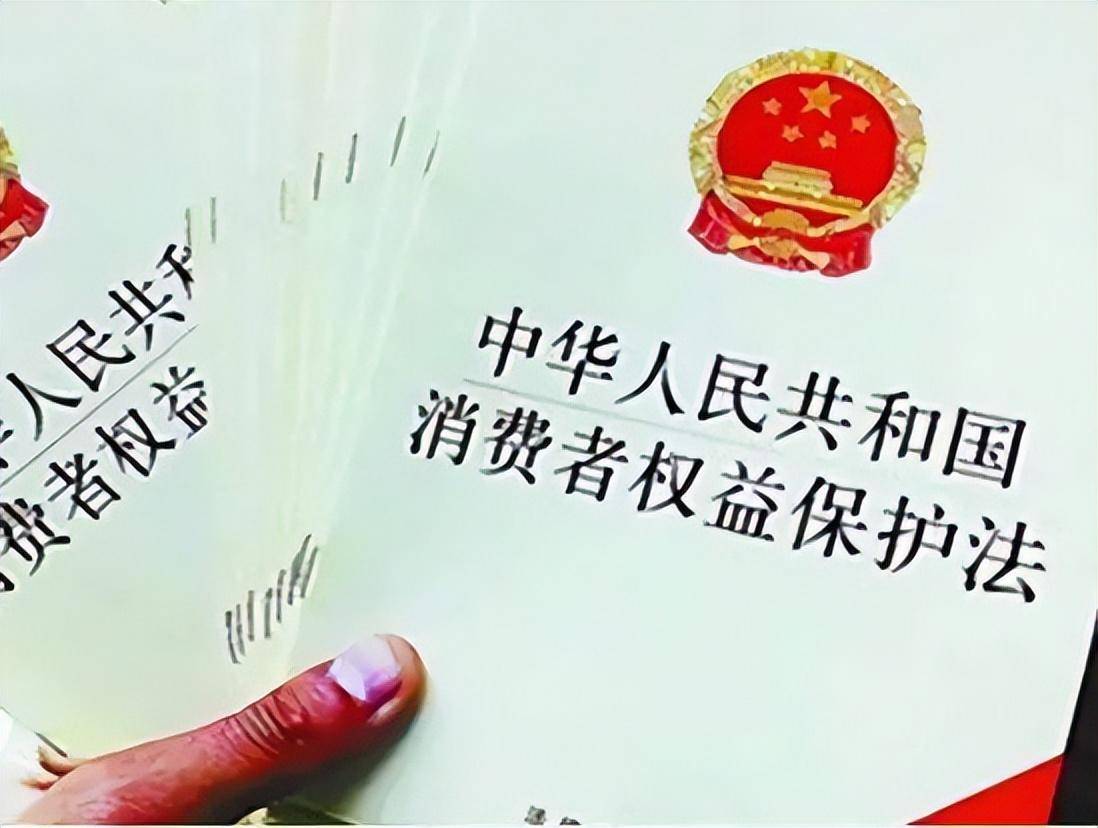 中华人民共和国
消费者权益保护法
人民共和
费者权益